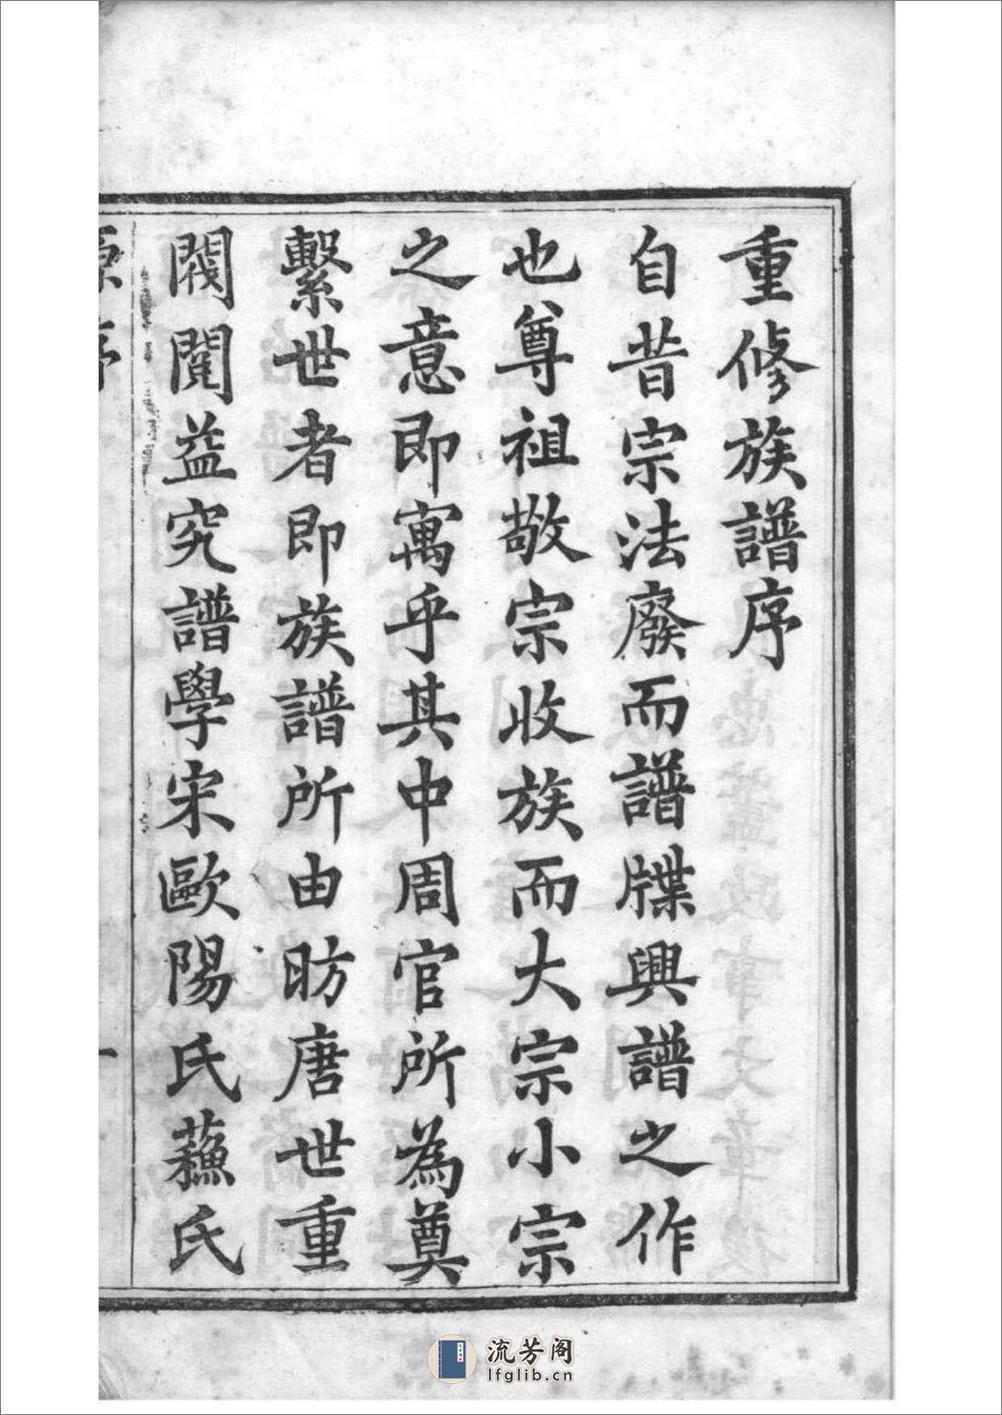 重修族譜序
自昔宗法廢而譜牒興譜之作
也尊祖敬宗收族而大宗小宗
之意即寓乎其中周官所為奠
繫世者即族譜所由昉唐世重
閥閱益究譜學宋歐陽氏蘓氏
序
一
流芳阁
lfglib.cn